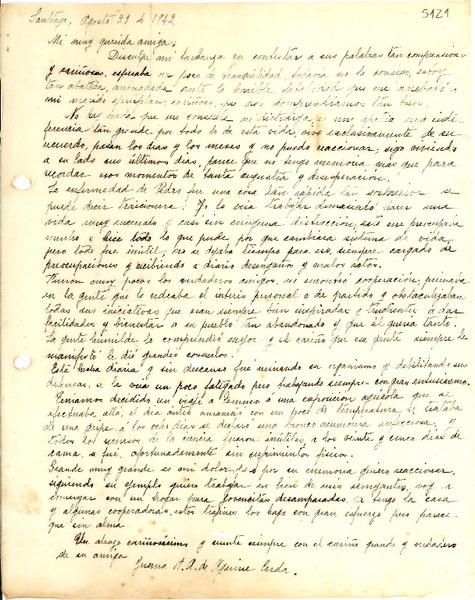 5121
Santiago, Agosto 31 de 1942
Mi muy querida amiga:
Disculpe mi tardanza en contestar a sus palabras tan comprensivas
y cariñosas, esperaba un poco de tranquilidad, todavía no la consigo, estoy
tan abatida, anonadada ante la terrible fatalidad que me arrebató a
mi marido ejemplar, cariñoso, que nos comprendíamos tan bien.
No hay nada que me consuele ni distraiga, es una apatía una indi-
ferencia tan grande por todo lo de esta vida, vivo exclusivamente de su
recuerdo, pasan los días y los meses y no puedo reaccionar, sigo viviendo
a su lado sus últimos días, parece que no tengo memoria más que para
recordar esos momentos de tanta angustia y desesperación.
La enfermedad de Pedro fue una cosa tan rápida tan sorpresiva se
puede decir traicionera! Yo lo veía trabajar demasiado hacer una
vida muy encerrado y casi sin ninguna distracción, esto me preocupaba
mucho e hice todo lo que pude por que cambiara sistema de vida
pero todo fue inútil, no se dejaba tiempo para eso, siempre cargado de
preocupaciones y recibiendo a diario desengaños y malos ratos.
Tuvo muy pocos los verdaderos amigos, no encontró cooperación, primaba
en la gente que lo rodeaba el interés personal o de partidos y obstaculizaban
todas sus iniciativas que eran siempre bien inspiradas y tendientes a dar
facilidades y bienestar a su pueblo tan abandonado y que él quería tanto.
La gente humilde lo comprendió mejor y el cariño que esa gente siempre le
manifestó le dió grandes consuelos.
Esta lucha diaria y sin descanso fue minando su organismo y debilitando sus
defensas, se le veía un poco fatigado pero trabajando siempre con gran entusiasmo.
Teníamos decidido un viaje a Temuco a una exposición agrícola que se
efectuaba allá, el día antes amaneció con un poco de temperatura, se trataba
de una gripe a los tres días se declaró una bronco neumonia infecciosa y
todos los recursos de la ciencia fueron inútiles, a los veinte y cinco días de
cama, se fué, afortunadamente sin sufrimientos físicos.
Grande muy grande es mi dolor, pero por su memoria quiero reaccionar,
siguiendo su ejemplo quiero trabajar en bien de mis semejantes, voy a
comenzar con un hogar para jovencitas desamparadas, ya tengo la casa
y algunas cooperadoras, estos trajines los hago con gran esfuerzo pero parece
que sin alma.
Un abrazo cariñosísimo y cuente siempre con el cariño grande y verdadero
de su amiga
Juana A. A. de Aguirre Cerda.